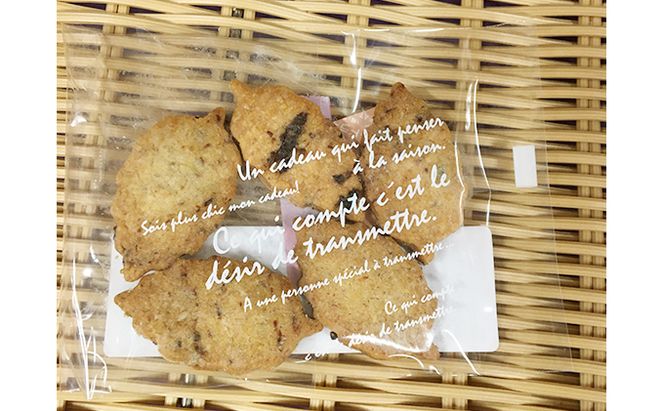 Un cadeau qui fait penser
à la saison.
Sois plus chic mon cadeau!
Ce qui compte c'est le
désir de transmettre.
A une personne spécial à transmettre...
Ce qui compte
désir de transmettre